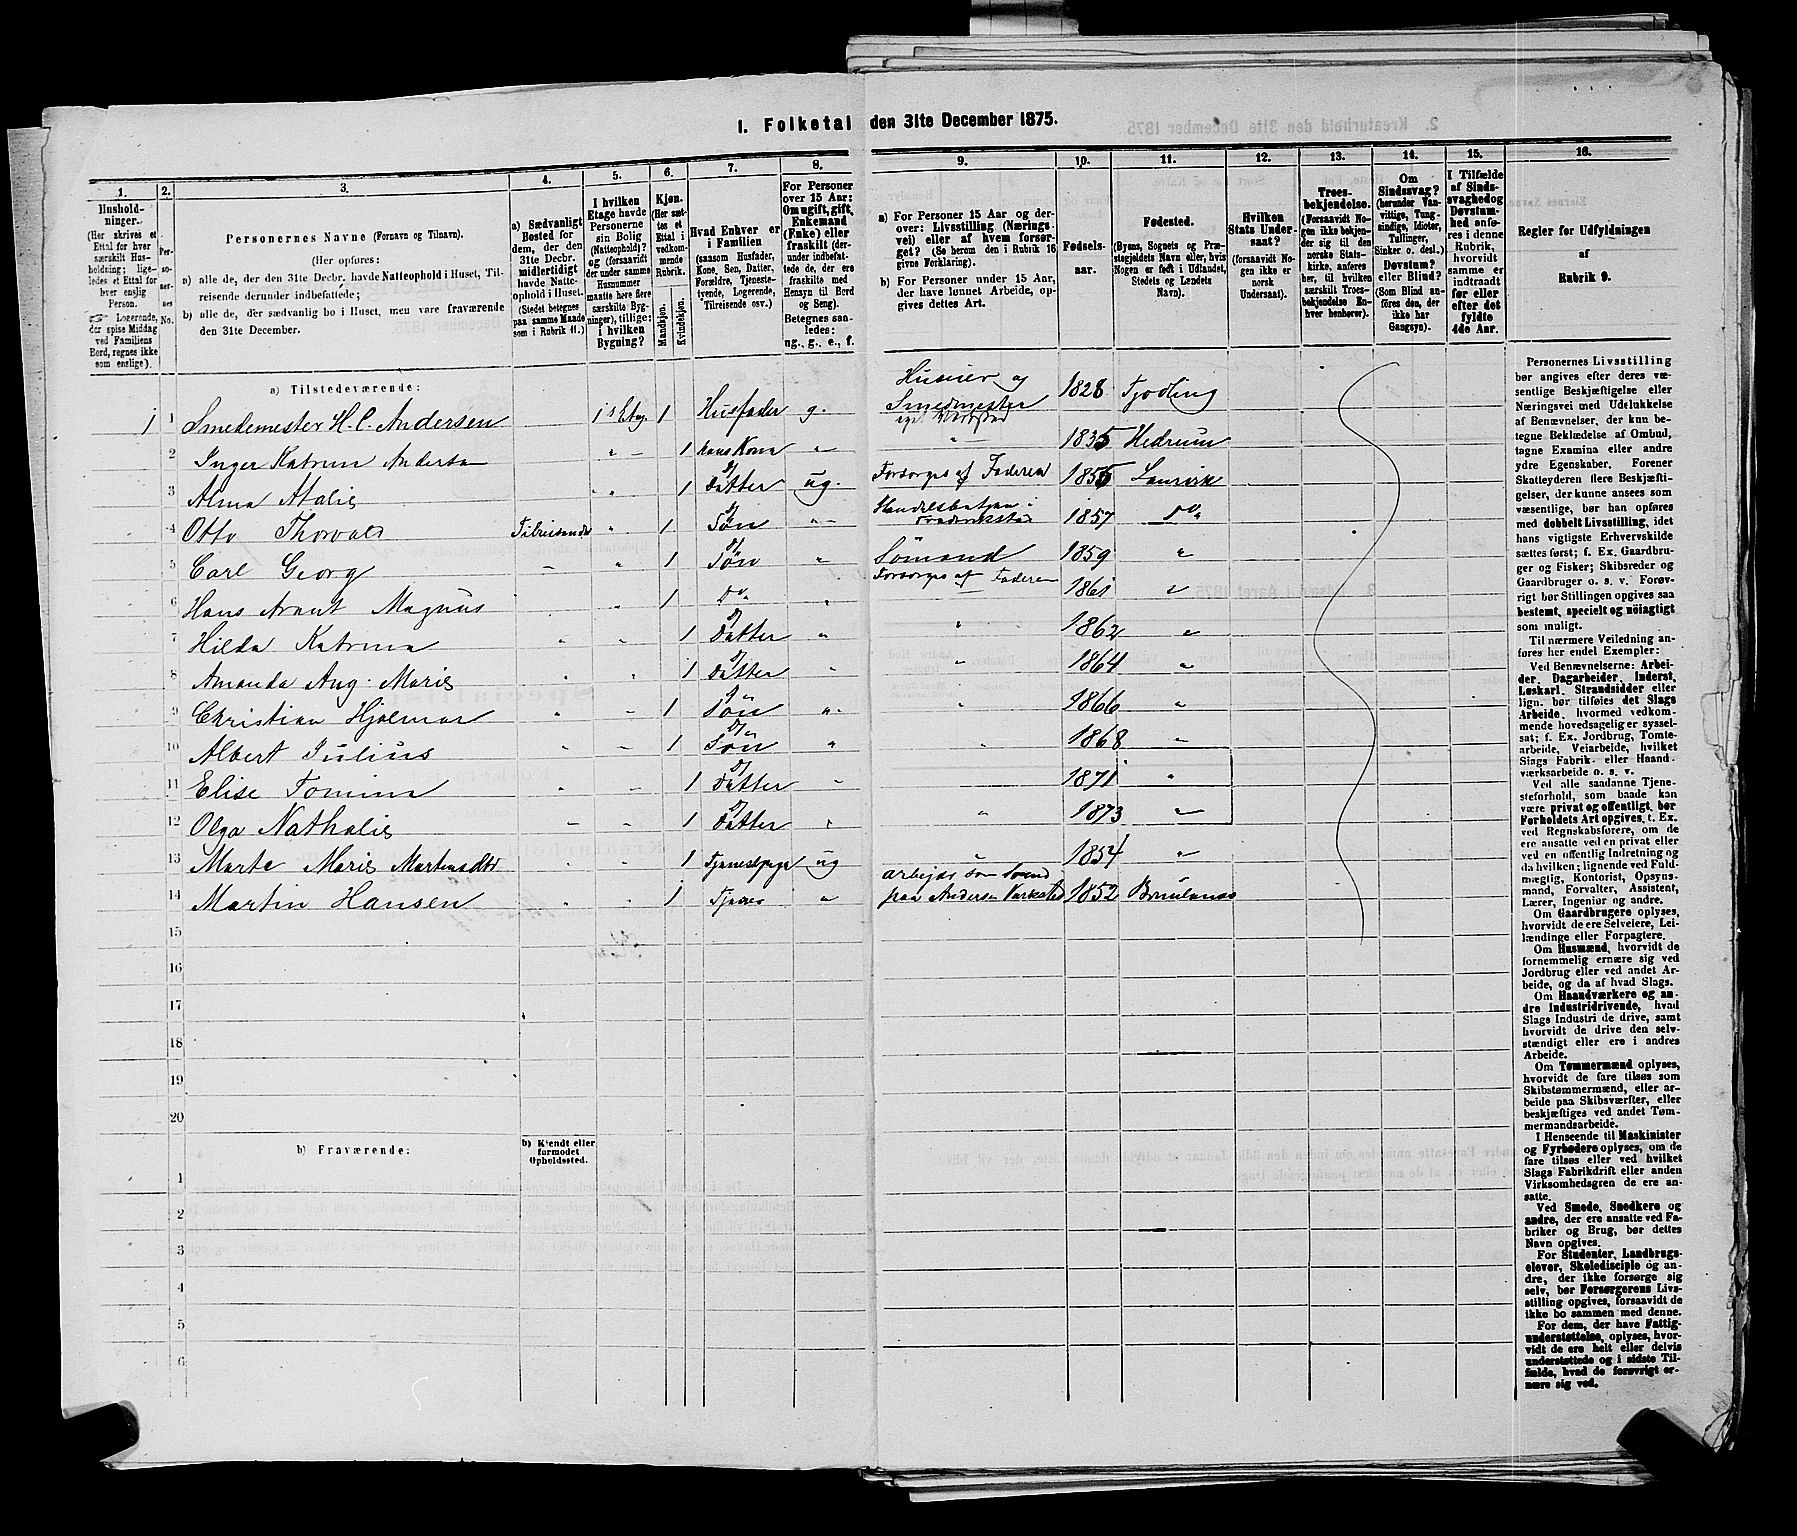 1. Folketal den 31te December 1875.
1.
2.
3.
4.
5.
6.
7.
8.
9.
10.
11.
12.
13.
14.
15.
16.
Husholdninger.
(Her skrives et
Ettal for hver
særskilt Husholdning;
ligeledes et Ettal for
hver enslig
Person.
Logerende,
der spise Middag
ved Familiens
Bord, regnes ikke
som enslige).
Personernes No.
Personernes Navne (Fornavn og Tilnavn).
(Her opføres:
a) alle de, der den 31te Decbr. havde Natteophold i Huset, Tilreisende derunder indbefattede;
b) alle de, der sædvanlig bo i Huset, men vare fraværende
den 31te December.
a) Sædvanligt
Bosted for
dem, der den
31te Decbr.
midlertidigt
havde Natteophold
i Huset.
(Stedet betegnes
paa samme Maade
som i Rubrik 11.)
I hvilken
Etage havde
Personerne
sin Bolig
(Natteophold)?
og (forsaavidt
der under samme
Husnummer
maatte høre flere
særskilte Bygninger),
tillige:
i hvilken
Bygning?
Kjøn.
(Her sættes
et
Ettal i
vedkommende
Rubrik.
Mandkjøn.
Kvindekjøn.
Hvad Enhver er
i Familien
(saasom Husfader,
Kone, Søn, Datter,
Forældre, Tjenestetyende,
Logerende,
Tilreisende osv.)
For Personer
over 15 Aar:
Om ugift, gift,
Enkemand
(Enke) eller
fraskilt (derunder
indbefattede
de, der ere
fraskilte med
Hensyn til Bord
og Seng).
Betegnes saaledes:
ug., g., e., f.
a) For Personer 15 Aar og derover:
Livsstilling (Næringsvei)
eller af hvem forsørget?
(Se herom den i Rubrik 16
givne Forklaring).
b) For Personer under 15 Aar,
der have lønnet Arbeide, opgives
dettes Art.
Fødselsaar.
Fødested.
(Byens, Sognets og Præstegjeldets
Navn eller, hvis
Nogen er født i Udlandet,
Stedets og Landets
Navn).
Hvilken
Stats Undersaat?
(forsaavidt Nogen
ikke er
norsk
Undersaat).
Troesbekjendelse.
(Forsaavidt Nogen
ikke bekjender
sig til den
norske Statskirke,
anføres
her, til hvilken
særskilt Troesbekjendelse
Enhver
henhører).
Om
Sindssvag?
(herunder Vanvittige,
Tungsindige,
Idioter,
Tullinger,
Sinker o. desl.).
Døvstum?
eller Blind?
(Som Blind anføres
den, der
ikke har
Gangsyn).
I Tilfælde
af Sindssvaghed
og
Døvstumhed
anføres
i denne
Rubrik,
hvorvidt
samme er
indtraadt
før eller
efter det
fyldte
4de Aar.
Regler for Udfyldningen
af
Rubrik 9.
a) Tilstedeværende:
1 1 Smedemester H. C. Andersen 1s Etag 1 Husfader g. Huseier og Smedmester 1828 Tjodling
2 Inger Katrina Andersen " 1 hans Kone " " 1835 Hedrum
3 Alma Atalie " 1 Datter ug. Forsørges af Faderen 1855 Laurvik
4 Otto Thorvald Tilreisende " 1 Søn " Fredrikstad 1857 Do
5 Carl Georg " 1 Søn " Sømand 1859 "
6 Hans Arant Magnus " 1 Do " Forsørges af Faderen 1861 "
7 Hilda Katrina " " 1 Datter " " 1862 "
8 Amanda Aug. Marie " " 1 Datter " " 1864 "
9 Christian Hjalmar " " 1 Søn " " 1866 "
10 Albert Julius " " 1 Søn " " 1868 "
11 Elise Tomina " " 1 Datter " 1871 "
12 Olga Nathalie " " 1 Datter " " 1873 "
13 Marte Marie " " 1 Tjenestpige ug " 1854 "
14 Martin Hansen " " 1 Tjener " arbejder som Svend paa Andersen Værksted 1852 Brunlanes
15
16
17
18
19
20
b) Fraværende:
b) Kjendt eller
formodet
Opholdssted.
1
2
3
4
5
6
Personernes Livsstilling
bør angives efter deres væsentlige
Beskjæftigelse eller
Næringsvei med Udelukkelse
af Benævnelser, der kun betegne
Beklædelse af Ombud,
tagne Examina eller andre
ydre Egenskaber. Forener
Skatteyderen flere Beskjæftigelser,
der kunne ansees som
væsentlige, bør han opføres
med dobbelt Livsstilling, idet
hans vigtigste Erhvervskilde
sættes først; f. Ex. Gaardbruger
og Fisker; Skibsreder og
Gaardbruger o. s. v. Forøvrigt
bør Stillingen opgives saa
bestemt, specielt og nøiagtigt
som muligt.
Til nærmere Veiledning anføres
her endel Exempler:
Ved Benævnelserne: Arbeider,
Dagarbeider, Inderst,
Løskarl, Strandsidder eller
lign. bør tilføies det Slags
Arbeide, hvormed vedkommende
hovedsagelig er sysselsat;
f. Ex. Jordbrug, Tomtearbeide,
Veiarbeide, hvilket
Slags Fabrik- eller Haandværksarbeide
o. s. v.
Ved alle saadanne Tjenesteforhold,
som baade kan
være privat og offentligt, bør
Forholdets Art opgives, t. Ex.
ved Regnskabsførere, om de
ere ansatte ved en privat eller
ved en offentlig Indretning og
da hvilken; lignende ved Fuldmægtig,
Kontorist, Opsynsmand,
Forvalter, Assistent,
Lærer, Ingeniør og andre.
Om Gaardbrugere oplyses,
hvorvidt de ere Selveiere, Leilændinge
eller Forpagtere.
Om Husmænd, hvorvidt de
fornemmelig ernære sig ved
Jordbrug eller ved andet Arbeide,
og da af hvad Slags.
Om Haandværkere og andre
Industridrivende, hvad
Slags Industri de drive, samt
hvorvidt de drive den selvstændigt
eller ere i andres
Arbeide.
Om Tømmermænd oplyses,
hvorvidt de fare tilsøs som
Skibstømmermænd, eller arbeide
paa Skibsværfter, eller
beskjæftiges ved andet Tømmermandsarbeide.
I Henseende til Maskinister
og Fyrbødere oplyses, om de
fare tilsøs eller ved hvilket
Slags Fabrikdrift eller anden
Virksomhedsgren de ere ansatte.
Ved Smede, Snedkere og
andre, der ere ansatte ved Fabriker
og Brug, bør dettes
Navn opgives.
For Studenter, Landbrugselever,
Skoledisciple og andre,
der ikke forsørge sig
selv, bør Forsørgerens Livsstilling
opgives, forsaavidt de
ikke bo sammen med denne.
For dem, der have Fattigunderstøttelse,
oplyses, hvorvidt
de ere helt eller delvis
understøttede og i sidste Tilfælde,
hvad de forøvrigt ernære
sig ved.